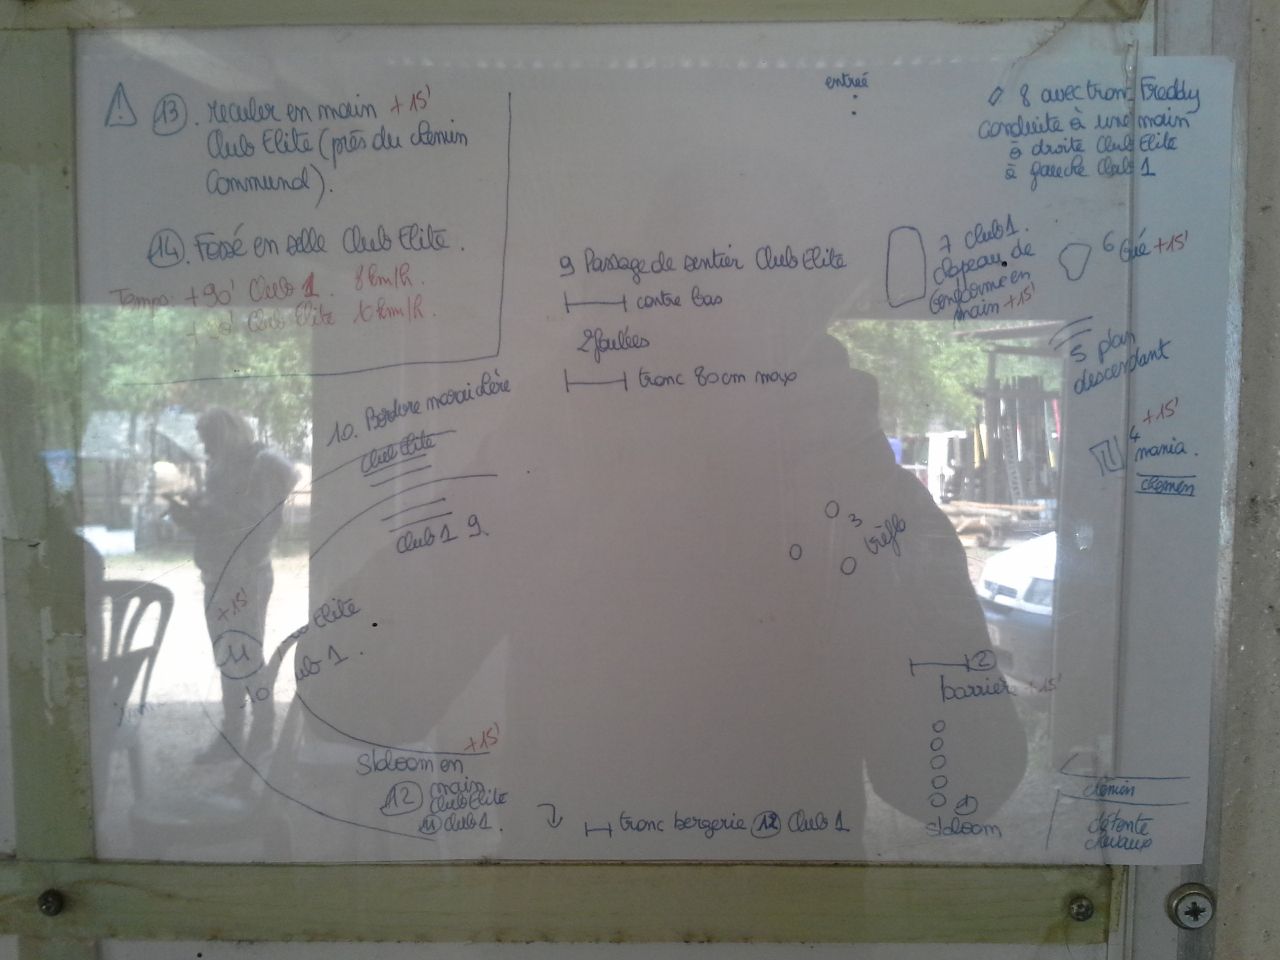 13. reculer en main +15'
Club Elite (près du chemin
Commund).
14. Fossé en selle Club Elite.
Temps: +90' Club 1. 8km/h.
Club Elite 6km/h.
entreé
8 avec tronc Freddy
conduite à une main
à droite Club Elite
à gauche Club 1
7 Club 1.
chapeau de
gendarme en
main +15'
6 Gué +15'
5 plan
descendant
4 +15'
mania.
chemin
9 Passage de sentier Club Elite
contre bas
2 foulées
tronc 80cm maxo
10. Bordure maraichère
Club Elite
Club 1 9.
3
trèfle
+15'
11 Elite
10 Club 1.
2
barrière +15'
1
slaloom
+15'
slaloom en
12 main
Club Elite
11 Club 1.
tronc bergerie 12 Club 1
chemin
détente
chevaux